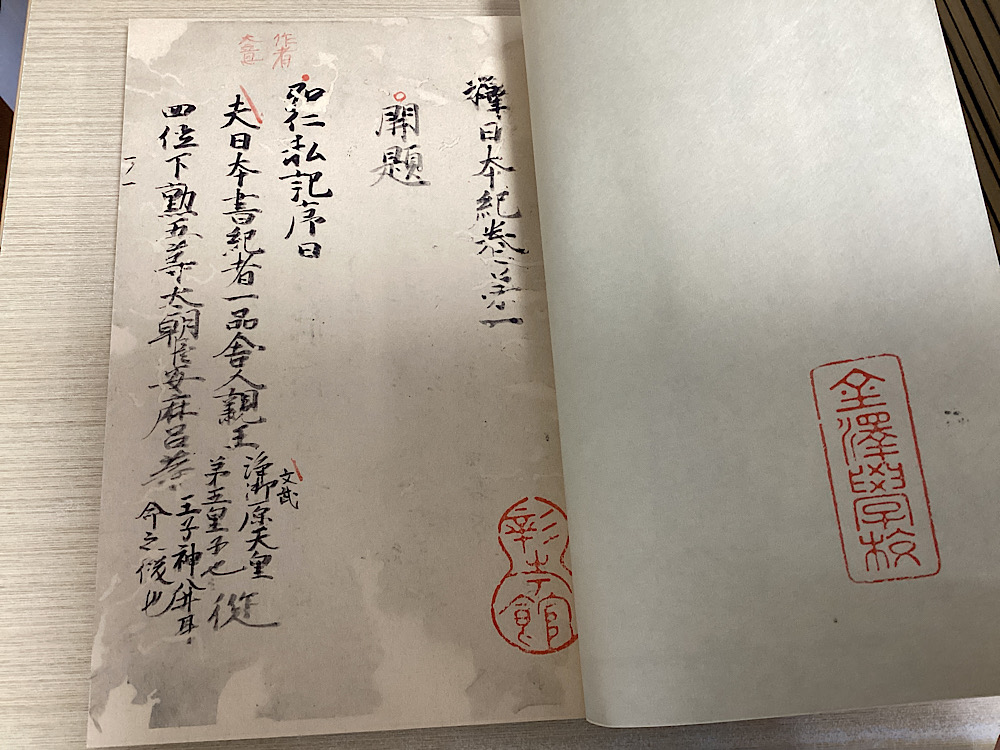 金澤學校
彰考館
釋日本紀卷第一
開題
作者
大意
弘仁私記序曰
夫日本書紀者一品舎人親王
浄御原天皇
文武
第五皇子也
從
四位下勲五等太朝臣安麻呂等
王子神八井耳
命之後也